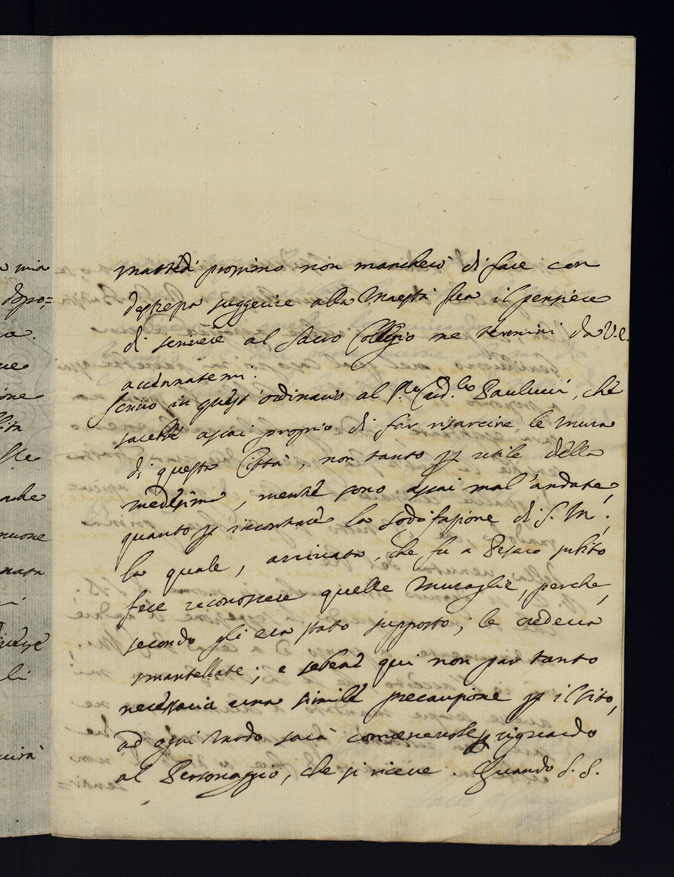 mia
dopo=
martedì prossimo non mancherò di fare con
destrezza suggerire alla Maestà sua il pensiere
di scrivere al Sacro Collegio ne termini da V.E.
accennatemi.
Scrivo in quest'ordinario al S.r Card.le Paulucci, che
sarebbe assai proprio di far risarcire le mura
di questa Città, non tanto p utile della
medesima, mentre sono assai mal'andate,
quanto p incontrare la sodisfazione di S. M.;
la quale, arrivata che fu a Pesaro subito
fece riconoscere quelle muraglie, perche,
secondo gli era stato supposto, le credeva
smantellate; e sebene qui non par tanto
necessaria una simile precauzione p il sito,
ad ogni modo sarà convenevole p riguardo
al Personaggio, che si riceve. Quando S. S.